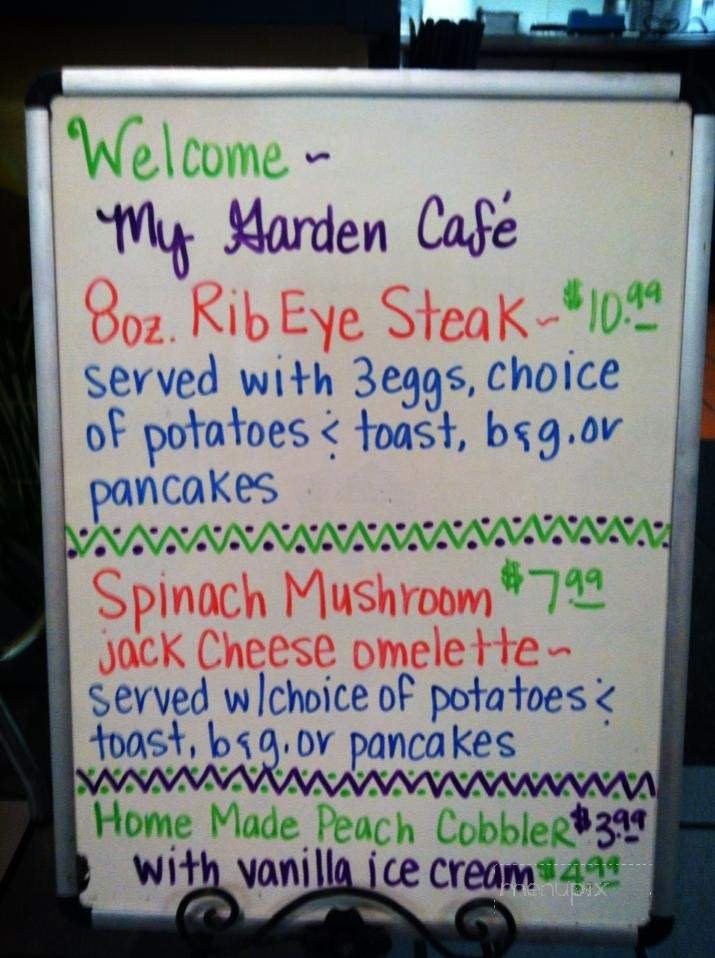 Welcome ~
My Garden Café
8oz. Rib Eye Steak ~ $10.99
served with 3 eggs, choice
of potatoes & toast, b&g. or
pancakes
Spinach Mushroom $7.99
jack Cheese omelette ~
served w/choice of potatoes &
toast, b&g. or pancakes
Home Made Peach Cobbler $3.99
with vanilla ice cream $4.99
menupix